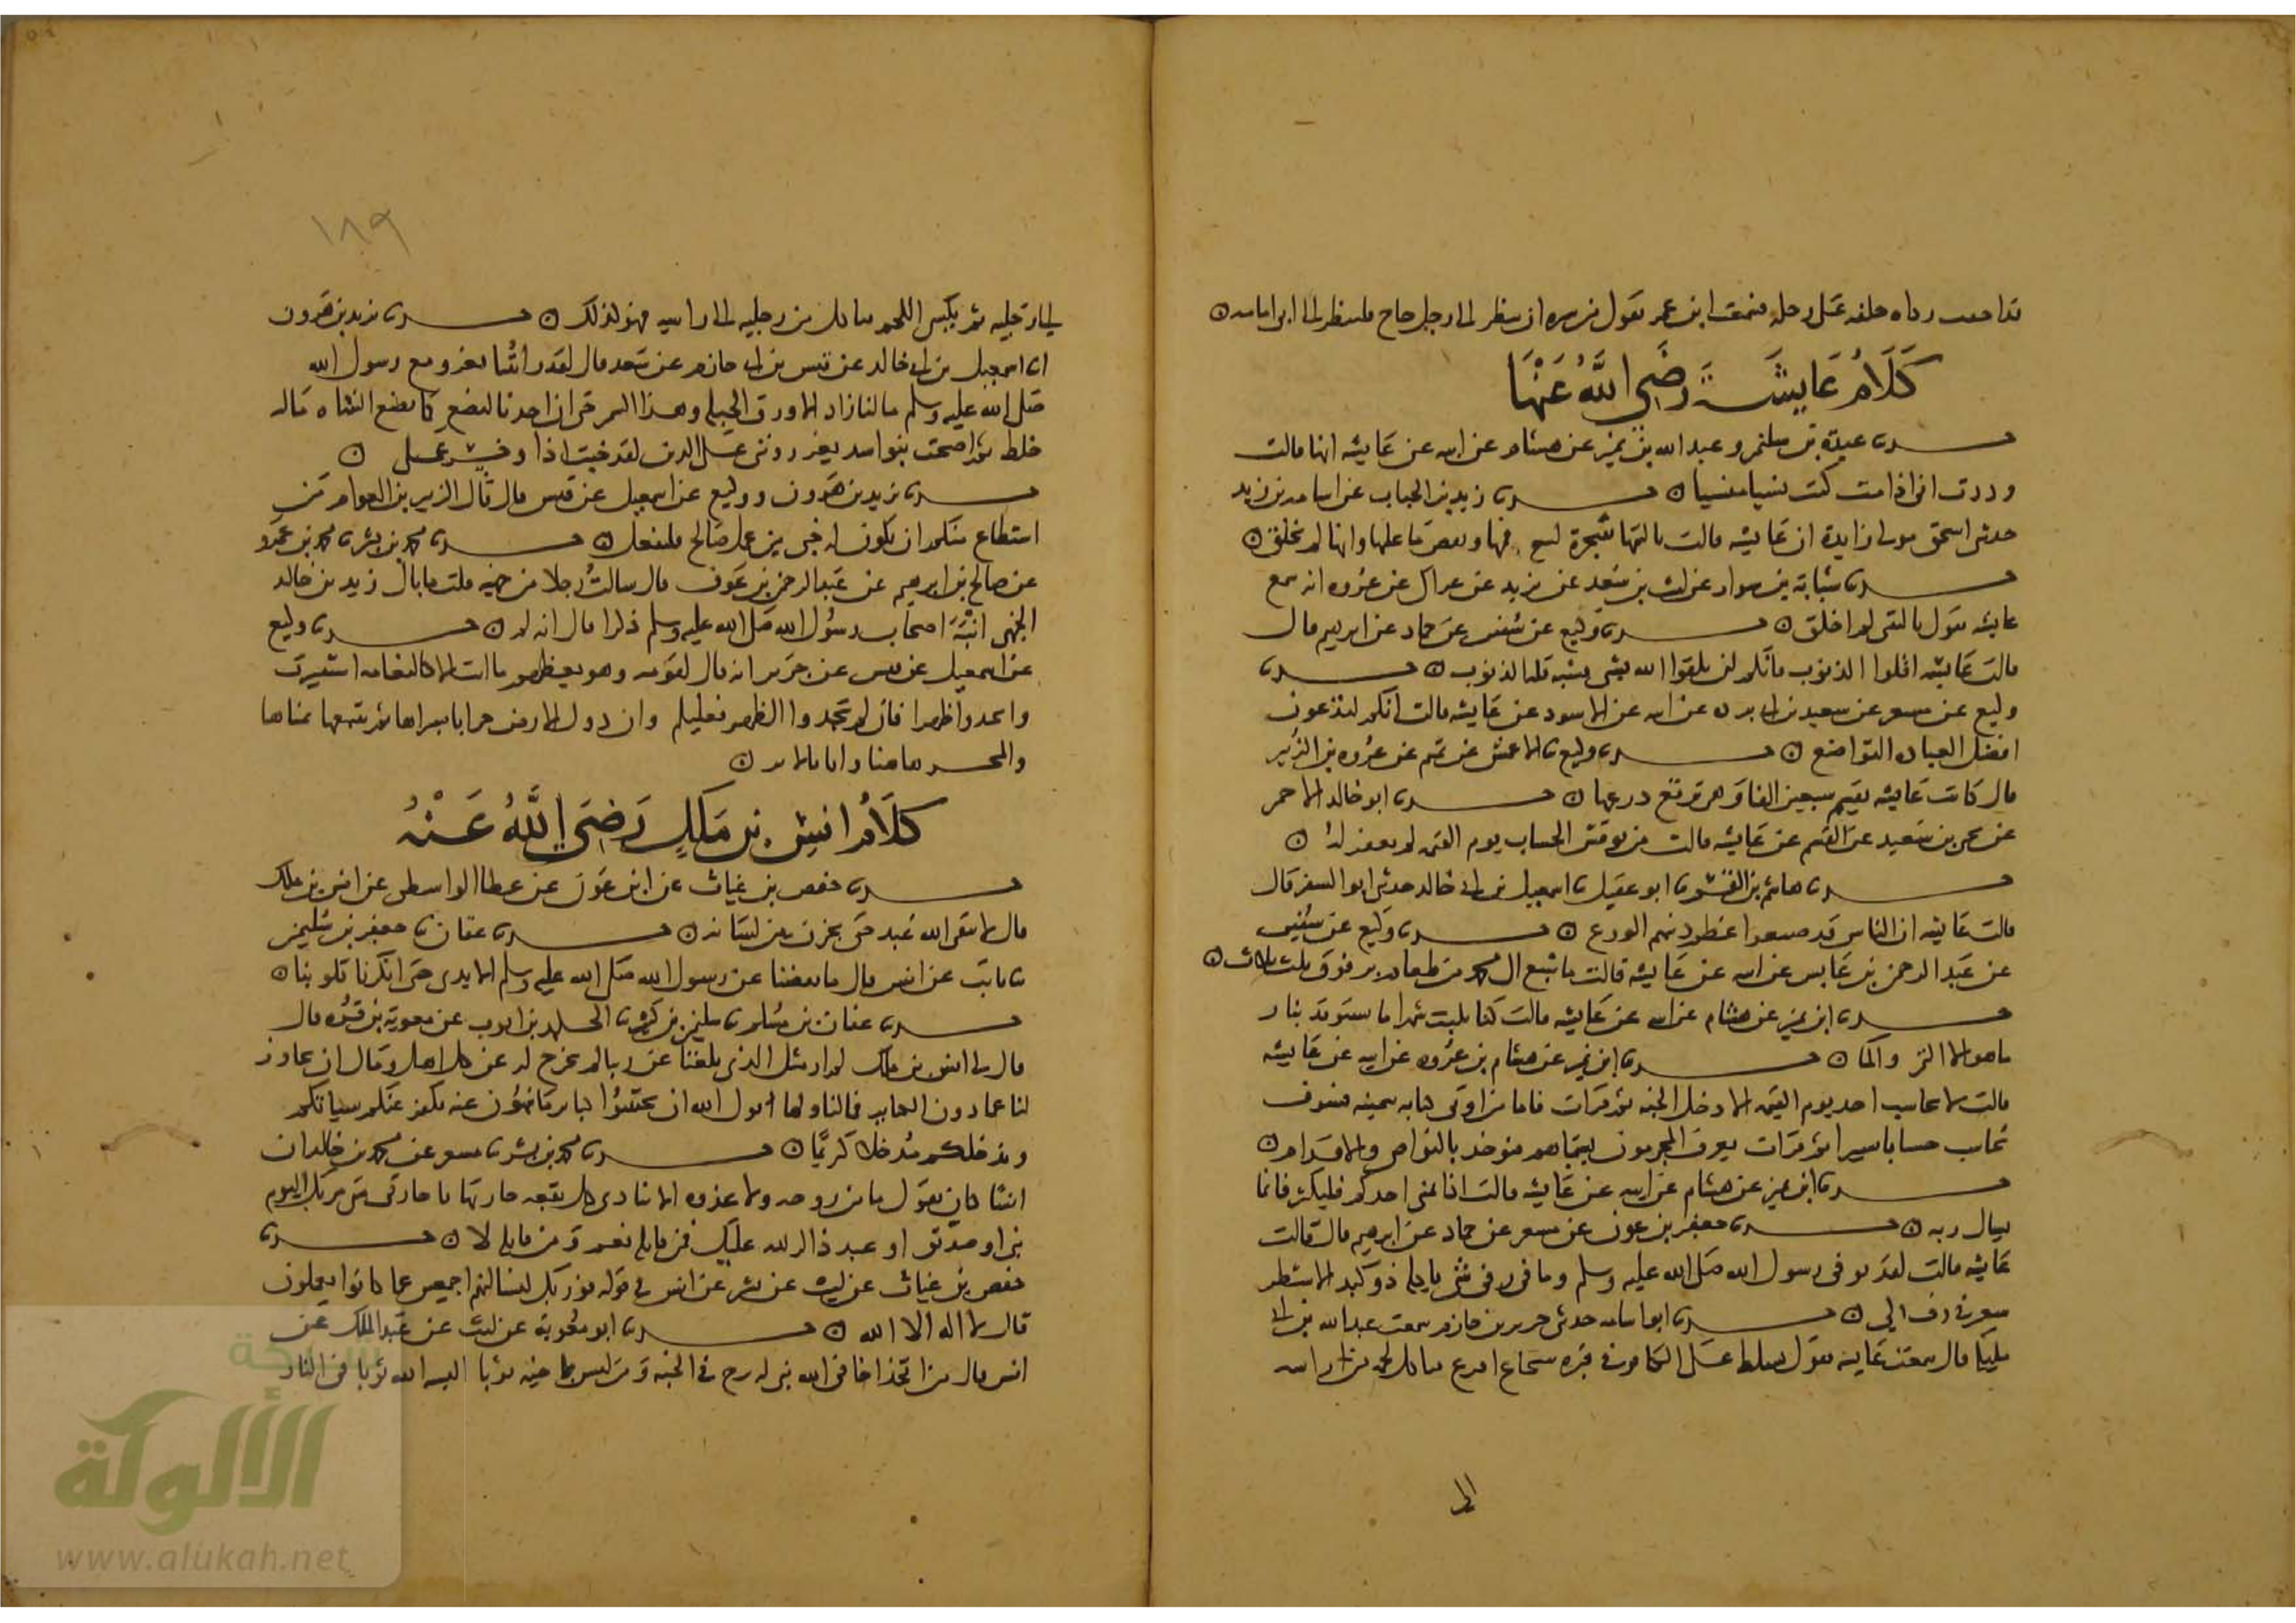 فسمعت ابن عمر يقول من سره ان ينظر الى رجل حاج فلينظر الى ابى امامه
كَلَامُ عَايِشَةَ رَضِيَ اللَّهُ عَنْهَا
حدثنا عبدة بن سليمن وعبد الله بن نمير عن هشام عن ابيه عن عايشه انها قالت
وددت انى اذا مت كنت نسيا منسيا حدثنا زيد بن الحباب عن اسامه بن زيد
حدثنى اسحق مولى زايدة ان عايشه قالت يا ليتها شجرة تسبح وتقضى ما عليها وانها لم تخلق
حدثنا شبابة بن سوار عن ليث بن سعد عن يزيد عن عراك عن عروه انه سمع
عايشه تقول يا ليتنى لم اخلق حدثنا وكيع عن سفين عن حماد عن ابرهيم قال
قالت عايشه اقلوا الذنوب فانكم لن تلقوا الله بشى يشبه قله الذنوب حدثنا
وكيع عن مسعر عن سعيد بن ابى برده عن ابيه عن الاسود عن عايشه قالت انكم لتدعون
افضل العباده التواضع حدثنا وكيع نا الاعمش عن تميم عن عروه بن الزبير
قال كانت عايشه تقسم سبعين الفا وهى ترقع درعها حدثنا ابو خالد الاحمر
عن يحيى بن سعيد عن القسم عن عايشه قالت من نوقش الحساب يوم القيمه لم يغفر له
حدثنا هاشم بن القسم نا ابو عقيل نا اسمعيل بن ابى خالد حدثنى ابو السفر قال
قالت عايشه ان الناس قد ضيعوا عظم دينهم الورع حدثنا وكيع عن سفين
عن عبد الرحمن بن عابس عن ابيه عن عايشه قالت ما شبع ال محمد من طعام بر فوق ثلث
حدثنا ابن نمير عن هشام عن ابيه عن عايشه قالت كنا نلبث شهرا ما نستوقد بنار
ما هو الا التمر والما حدثنا ابن نمير عن هشام بن عروه عن ابيه عن عايشه
قالت لا يحاسب احد يوم القيمه الا دخل الجنه ثم قرات فاما من اوتى كتابه بيمينه فسوف
يحاسب حسابا يسيرا ثم قرات يعرف المجرمون بسيماهم فيوخذ بالنواصى والاقدام
حدثنا ابن نمير عن هشام عن ابيه عن عايشه قالت اذا تمنى احدكم فليكثر فانما
يسال ربه حدثنا جعفر بن عون عن مسعر عن حماد عن ابرهيم قال قالت
عايشه قالت لقد توفى رسول الله صلى الله عليه وسلم وما فى رفى شى ياكله ذو كبد الا شطر
شعير فى رف لى حدثنا ابو اسامه حدثنى جرير بن حازم سمعت عبد الله بن ابى
مليكا قال سمعت عايشه تقول يسلط على الكافر فى قبره شجاع اقرع ياكل لحمه من راسه
الى
١٨٩
الى رجليه ثم يكسى اللحم فياكل من رجليه الى راسه فهو كذلك حدثنا يزيد بن هرون
انا اسمعيل بن ابى خالد عن قيس بن ابى حازم عن سعد قال لقد راتنا نغزو مع رسول الله
صلى الله عليه وسلم ما لنا زاد الا ورق الحبله وهذا السمر حتى ان احدنا ليضع كما تضع الشاه ماله
خلط ثم اصبحت بنو اسد يعزروننى على الدين لقد خبت اذا وضل عملى
حدثنا يزيد بن هرون ووكيع عن اسمعيل عن قيس قال قال الزبير بن العوام من
استطاع منكم ان يكون له خبى من عمل صالح فليفعل حدثنا محمد بن بشر نا محمد بن عمرو
عن صالح بن ابرهيم عن عبد الرحمن بن عوف قال سالت رجلا من جهينه قلت ما بال زيد بن خالد
الجهنى انبه اصحاب رسول الله صلى الله عليه وسلم ذكرا قال انه لم حدثنا وكيع
عن اسمعيل عن قيس عن جرير انه قال لقومه وهو يعظهم
واعدوا ظهرا فان لم تجدوا الظهر فعليكم
والمحشر هاهنا وانا بالاثر
كَلَامُ انَسِ بْنِ مَلِكٍ رَضِيَ اللَّهُ عَنْهُ
حدثنا حفص بن غياث عن ابن عون عن عطا الواسطى عن انس بن ملك
قال لا يتقى الله عبد حتى يخزن من لسانه حدثنا عفان نا جعفر بن سليمن
نا ثابت عن انس قال ما نفضنا عن رسول الله صلى الله عليه وسلم الايدى حتى انكرنا قلوبنا
حدثنا عفان بن مسلم نا سليمن بن كثير نا الجلد بن ايوب عن معوية بن قره قال
قال لى انس بن ملك لم ار مثل الذى بلغنا عن ربنا لم نخرج له عن كل اهل ومال ان تجاوز
لنا عما دون الكباير فما لنا ولها يقول الله ان تجتنبوا كباير ما تنهون عنه نكفر عنكم سياتكم
وندخلكم مدخلا كريما حدثنا محمد بن بشر نا مسعر عن محمد بن خالد ان
انسا كان يقول ما من روحه ولا غدوه الا تنادى كل بقعه جارتها يا جارتى متى مر بك اليوم
نبى او صديق او عبد ذاكر لله عليك فمن قايله نعم ومن قايله لا حدثنا
حفص بن غياث عن ليث عن بشر عن انس فى قوله فوربك لنسالنهم اجمعين عما كانوا يعملون
قال لا اله الا الله حدثنا ابو معوية عن ليث عن عبد الملك عن
انس قال من اتخذ اخا فى الله بنى له برج فى الجنه ومن لبس باخيه ثوبا البسه الله ثوبا فى النار
شبكة
الألوكة
www.alukah.net